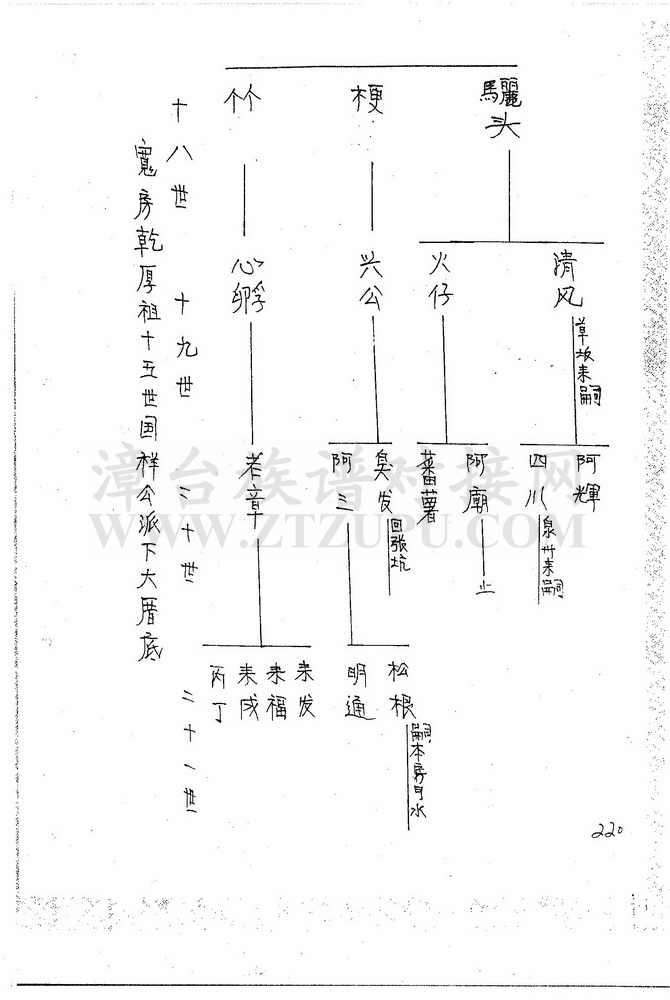 驪头
梗
竹
十八世
寬房乾厚祖十五世国祥公派下大厝底
清风
草坂来嗣
火仔
兴公
心孵
十九世
阿輝
四川
泉州来嗣
阿廟
止
蕃薯
臭发
回張坑
阿三
老章
二十世
松根
嗣本房月水
明通
来发
来福
来成
丙丁
二十一世
220
漳台族谱对接网
WWW.ZTZUPU.COM